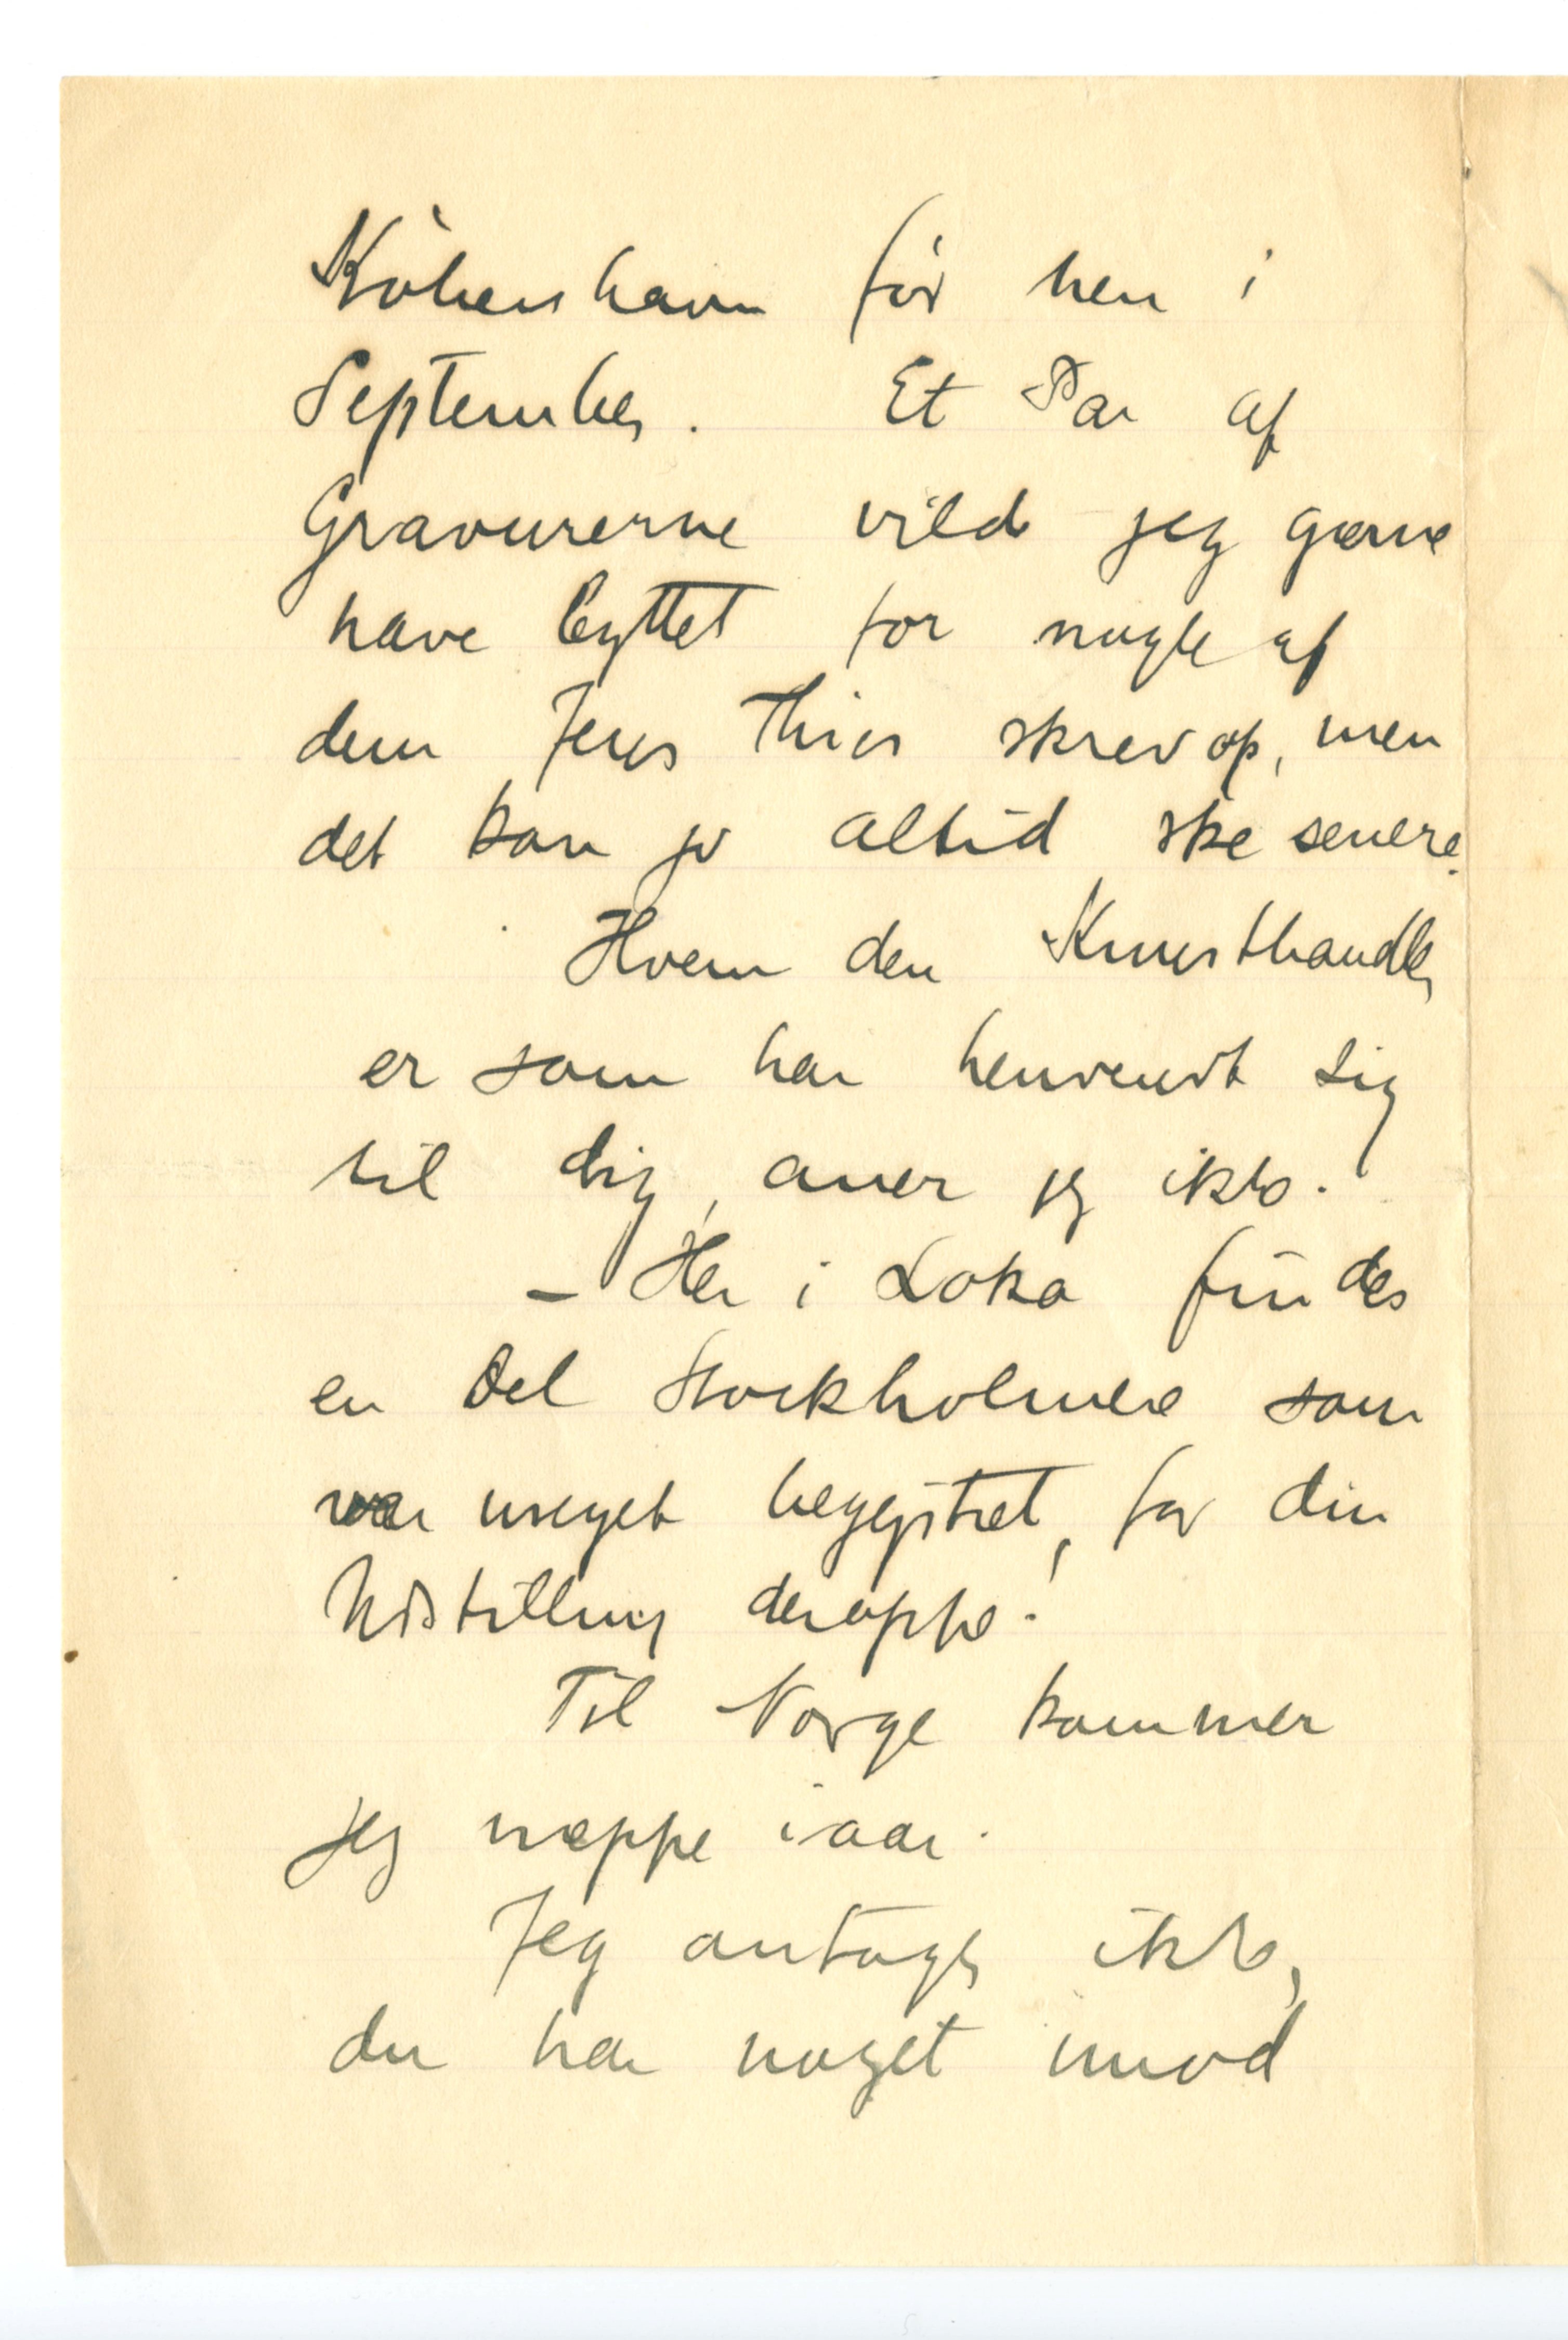 København før hen i
September. Et Par af
Gravurerne vilde jeg gærne
have byttet for nogle af
dem Jens Thiis skrev op, men
det kan jo altid ske senere.
Hvem den Kunsthandler
er som har henvendt sig
til dig, aner jeg ikke.
– Her i Loka findes
en Del Stockholmere som
var meget begejstret, for din
Udstilling deroppe.
Til Norge kommer
jeg næppe iaar.
Jeg antager ikke,
du har noget imod